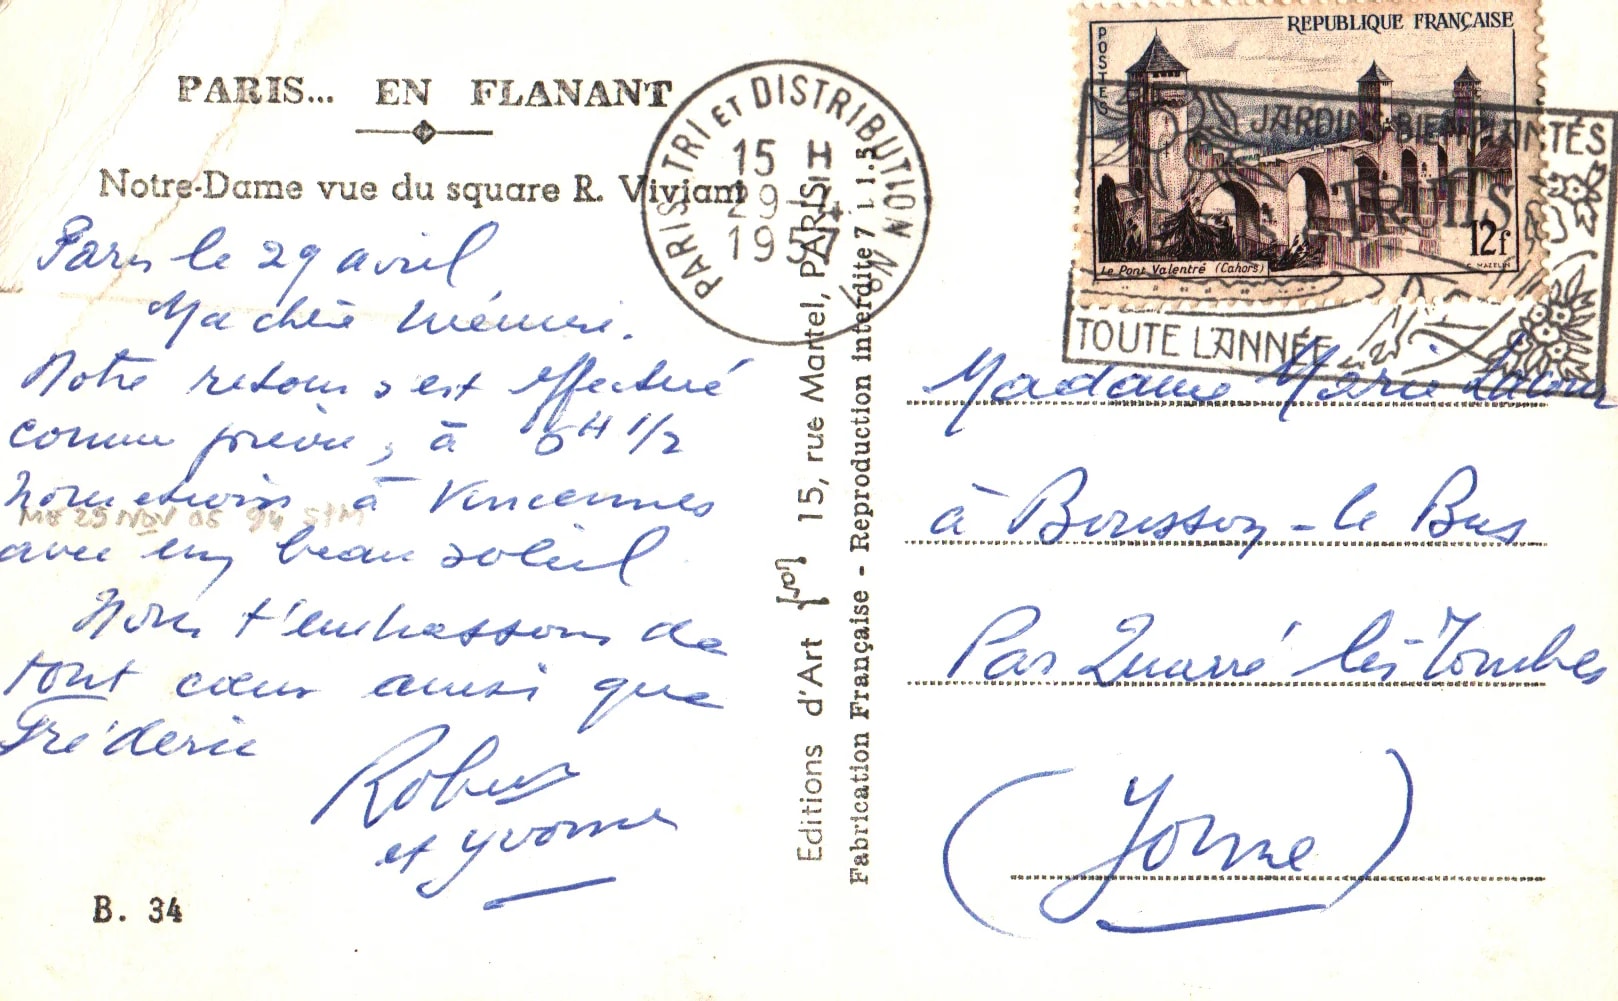 PARIS... EN FLANANT
Notre-Dame vue du square R. Viviani
Paris le 29 avril
Ma chère Mémère.
Notre retour s'est effectué
comme prévu, à 6H 1/2
nous étions à Vincennes
avec un beau soleil
Nous t'embrassons de
tout cœur ainsi que
Fréderic
Robert
et Yvonne
B. 34
PARIS TRI ET DISTRIBUTION
15 H
29 - 4
1957
Editions d'Art 15, rue Martel, PARIS
Fabrication Française - Reproduction interdite 7 11.5
REPUBLIQUE FRANÇAISE
POSTES
12f
Le Pont Valentré (Cahors)
C. MAZELIN
JARDINS BIEN PLANTÉS
FRUITS
TOUTE L'ANNÉE
Madame Marie
à Bousson-le Bas
Par Quarré les Tombes
(Yonne)